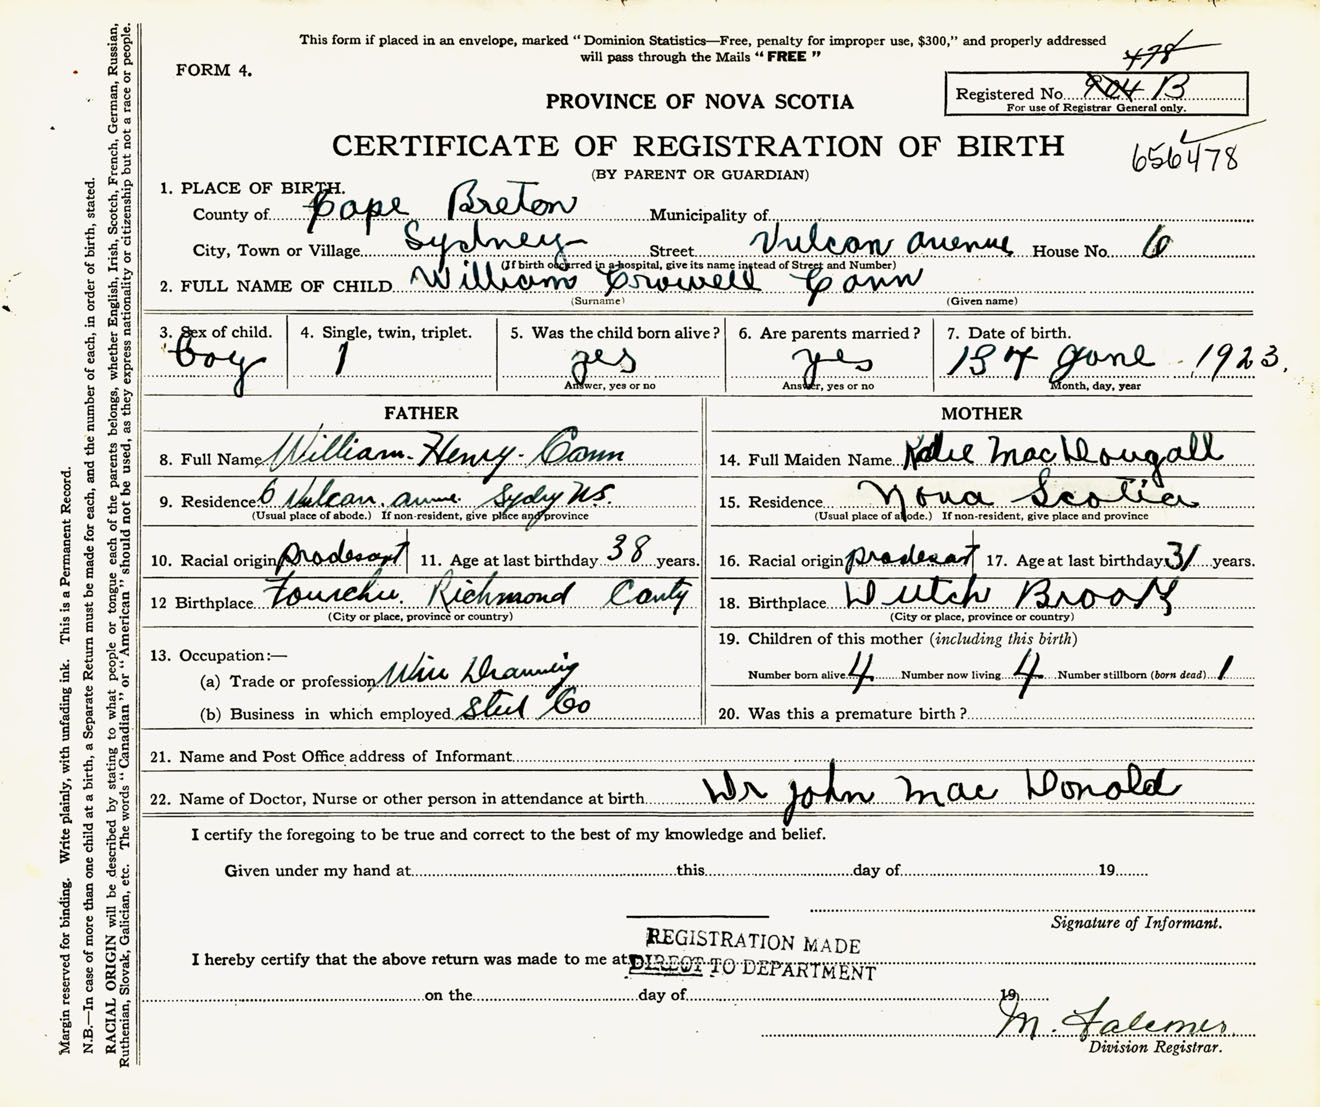 This form if placed in an envelope, marked "Dominion Statistics—Free, penalty for improper use, $300," and properly addressed
will pass through the Mails "FREE"
FORM 4.
478
Registered No. B
For use of Registrar General only.
PROVINCE OF NOVA SCOTIA
CERTIFICATE OF REGISTRATION OF BIRTH
656478
(BY PARENT OR GUARDIAN)
1. PLACE OF BIRTH.
County of Cape Breton Municipality of
City, Town or Village Sydney Street Vulcan avenue House No. 6
(If birth occurred in a hospital, give its name instead of Street and Number)
2. FULL NAME OF CHILD William Crowell Cann
(Surname) (Given name)
3. Sex of child. 4. Single, twin, triplet. 5. Was the child born alive? 6. Are parents married? 7. Date of birth.
boy 1 yes yes 13 June 1923.
Answer, yes or no Answer, yes or no Month, day, year
FATHER MOTHER
8. Full Name William Henry Cann 14. Full Maiden Name Katie MacDougall
9. Residence 6 Vulcan Sydny N.S. 15. Residence Nova Scotia
(Usual place of abode.) If non-resident, give place and province (Usual place of abode.) If non-resident, give place and province
10. Racial origin prodesant 11. Age at last birthday 38 years. 16. Racial origin prodesant 17. Age at last birthday 31 years.
12 Birthplace Fourchu. Richmond Conty 18. Birthplace Dutch Brook
(City or place, province or country) (City or place, province or country)
19. Children of this mother (including this birth)
13. Occupation:—
(a) Trade or profession Wire Drawing Number born alive 4 Number now living 4 Number stillborn (born dead) 1
(b) Business in which employed Steel Co 20. Was this a premature birth?
21. Name and Post Office address of Informant
22. Name of Doctor, Nurse or other person in attendance at birth Dr John Mac Donald
I certify the foregoing to be true and correct to the best of my knowledge and belief.
Given under my hand at this day of 19
Signature of Informant.
REGISTRATION MADE
I hereby certify that the above return was made to me at DIRECT TO DEPARTMENT
on the day of 19
M.
Division Registrar.
Margin reserved for binding. Write plainly, with unfading ink. This is a Permanent Record.
N.B.—In case of more than one child at a birth, a Separate Return must be made for each, and the number of each, in order of birth, stated.
RACIAL ORIGIN will be described by stating to what people or tongue each of the parents belongs, whether English, Irish, Scotch, French, German, Russian,
Ruthenian, Slovak, Galician, etc. The words "Canadian" or "American" should not be used, as they express nationality or citizenship but not a race or people.